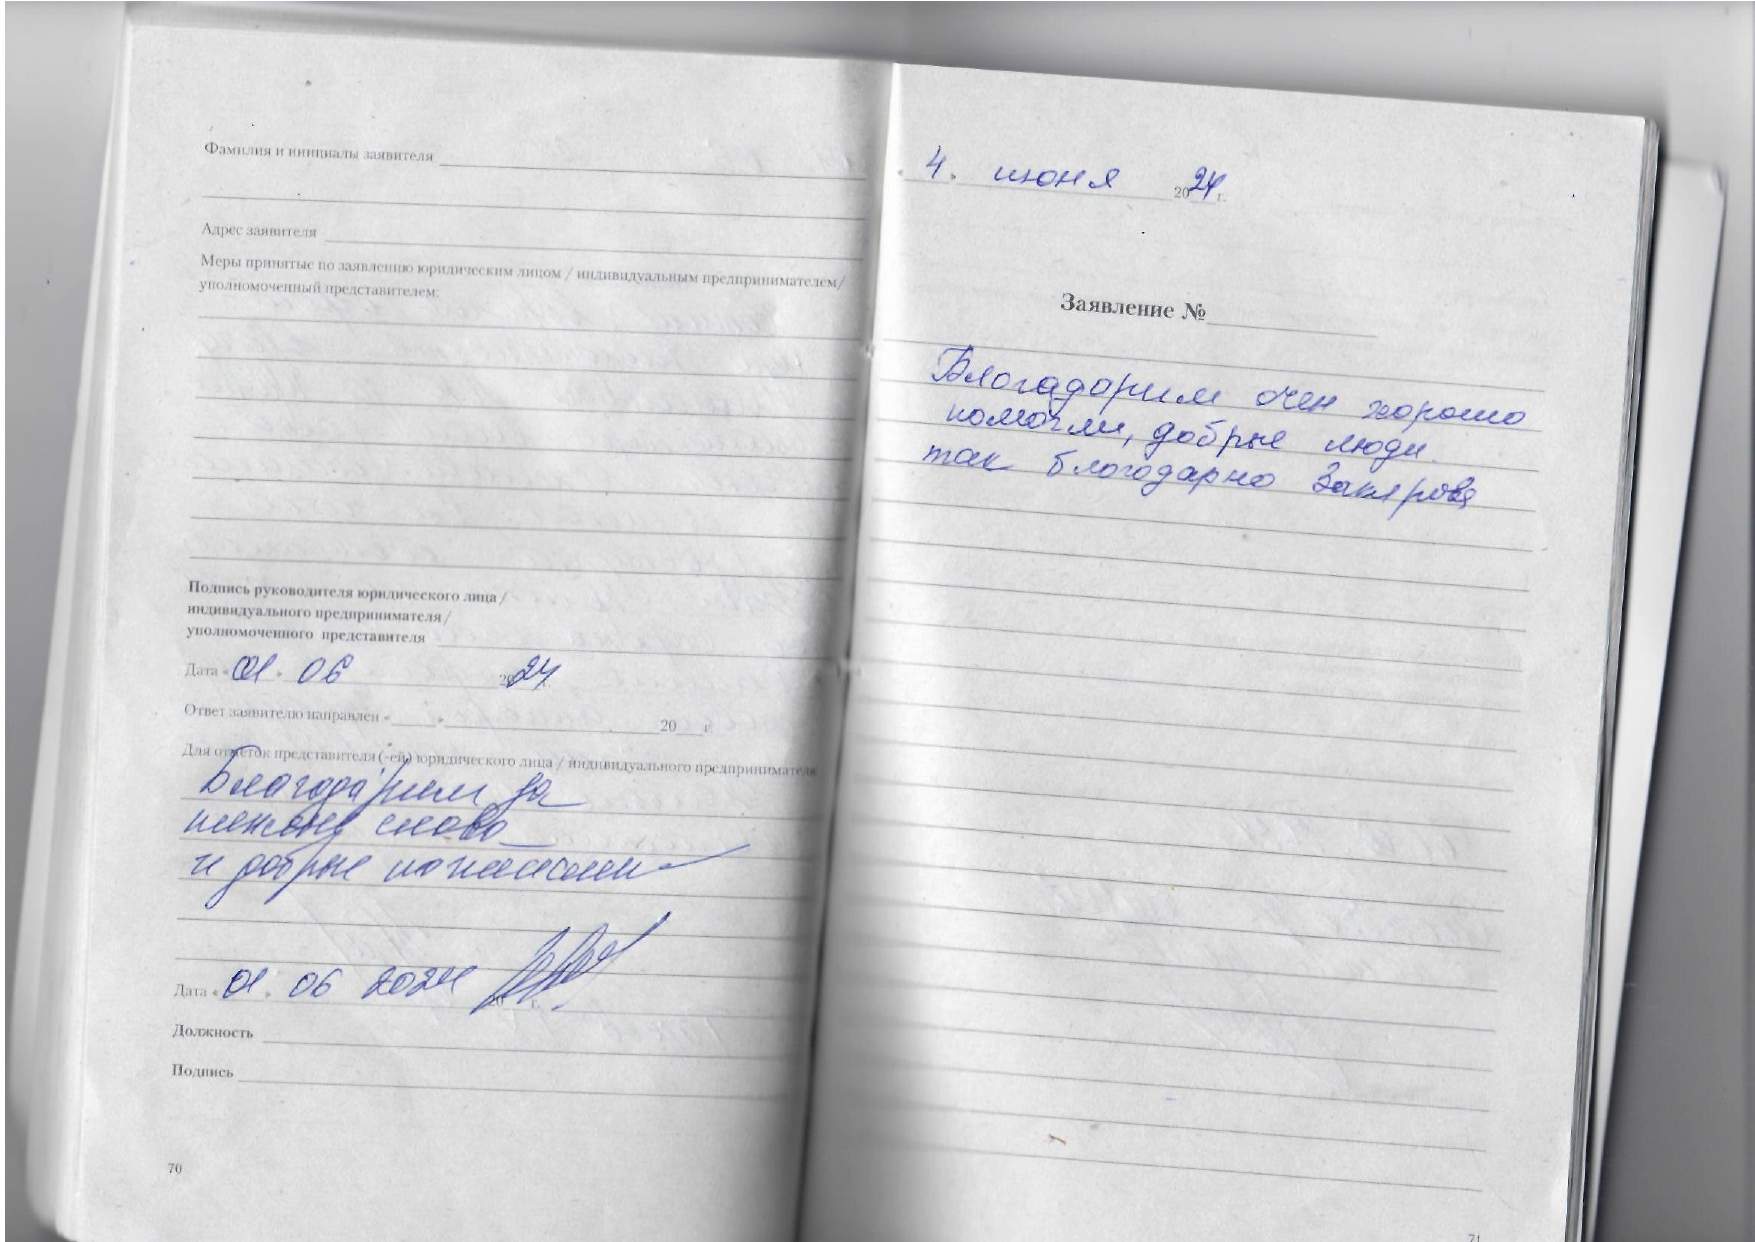 Фамилия и инициалы заявителя
Адрес заявителя
Меры принятые по заявлению юридическим лицом / индивидуальным предпринимателем/
уполномоченный представителем:
Подпись руководителя юридического лица /
индивидуального предпринимателя /
уполномоченного представителя
Дата « 01 » 06 2024 г.
Ответ заявителю направлен « » 20 г.
Для отметок представителя (-ей) юридического лица / индивидуального предпринимателя
Благодарим за
слова
и добрые
Дата « 01 » 06 2024 20 г.
Должность
Подпись
70
« 4 » июня 2024 г.
Заявление №
Благадорим очен хорошо
помогли, добрые люди.
так благодарно Закирова
71